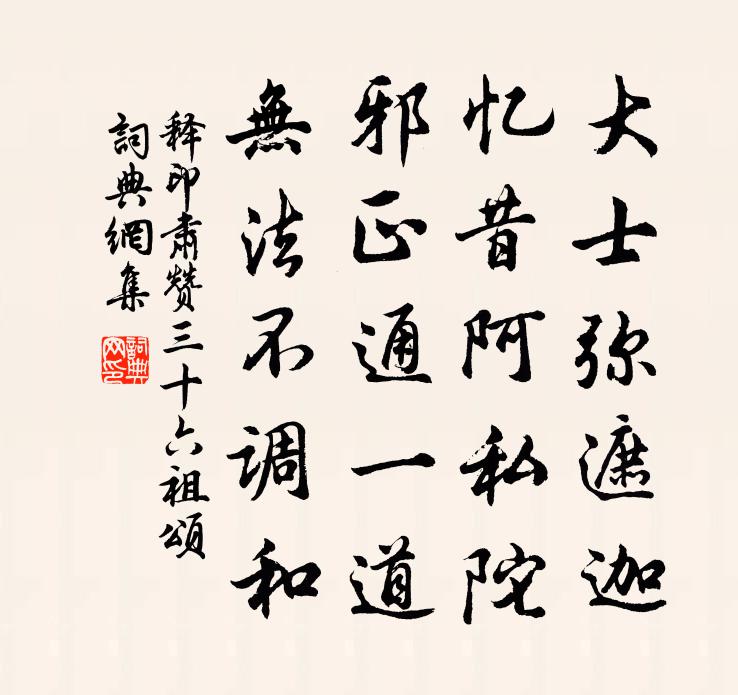 大士弥遮迦
忆昔阿私陀
邪正通一道
無法不调和
释印肅赞三十六祖頌
詞典網集
詞典网印